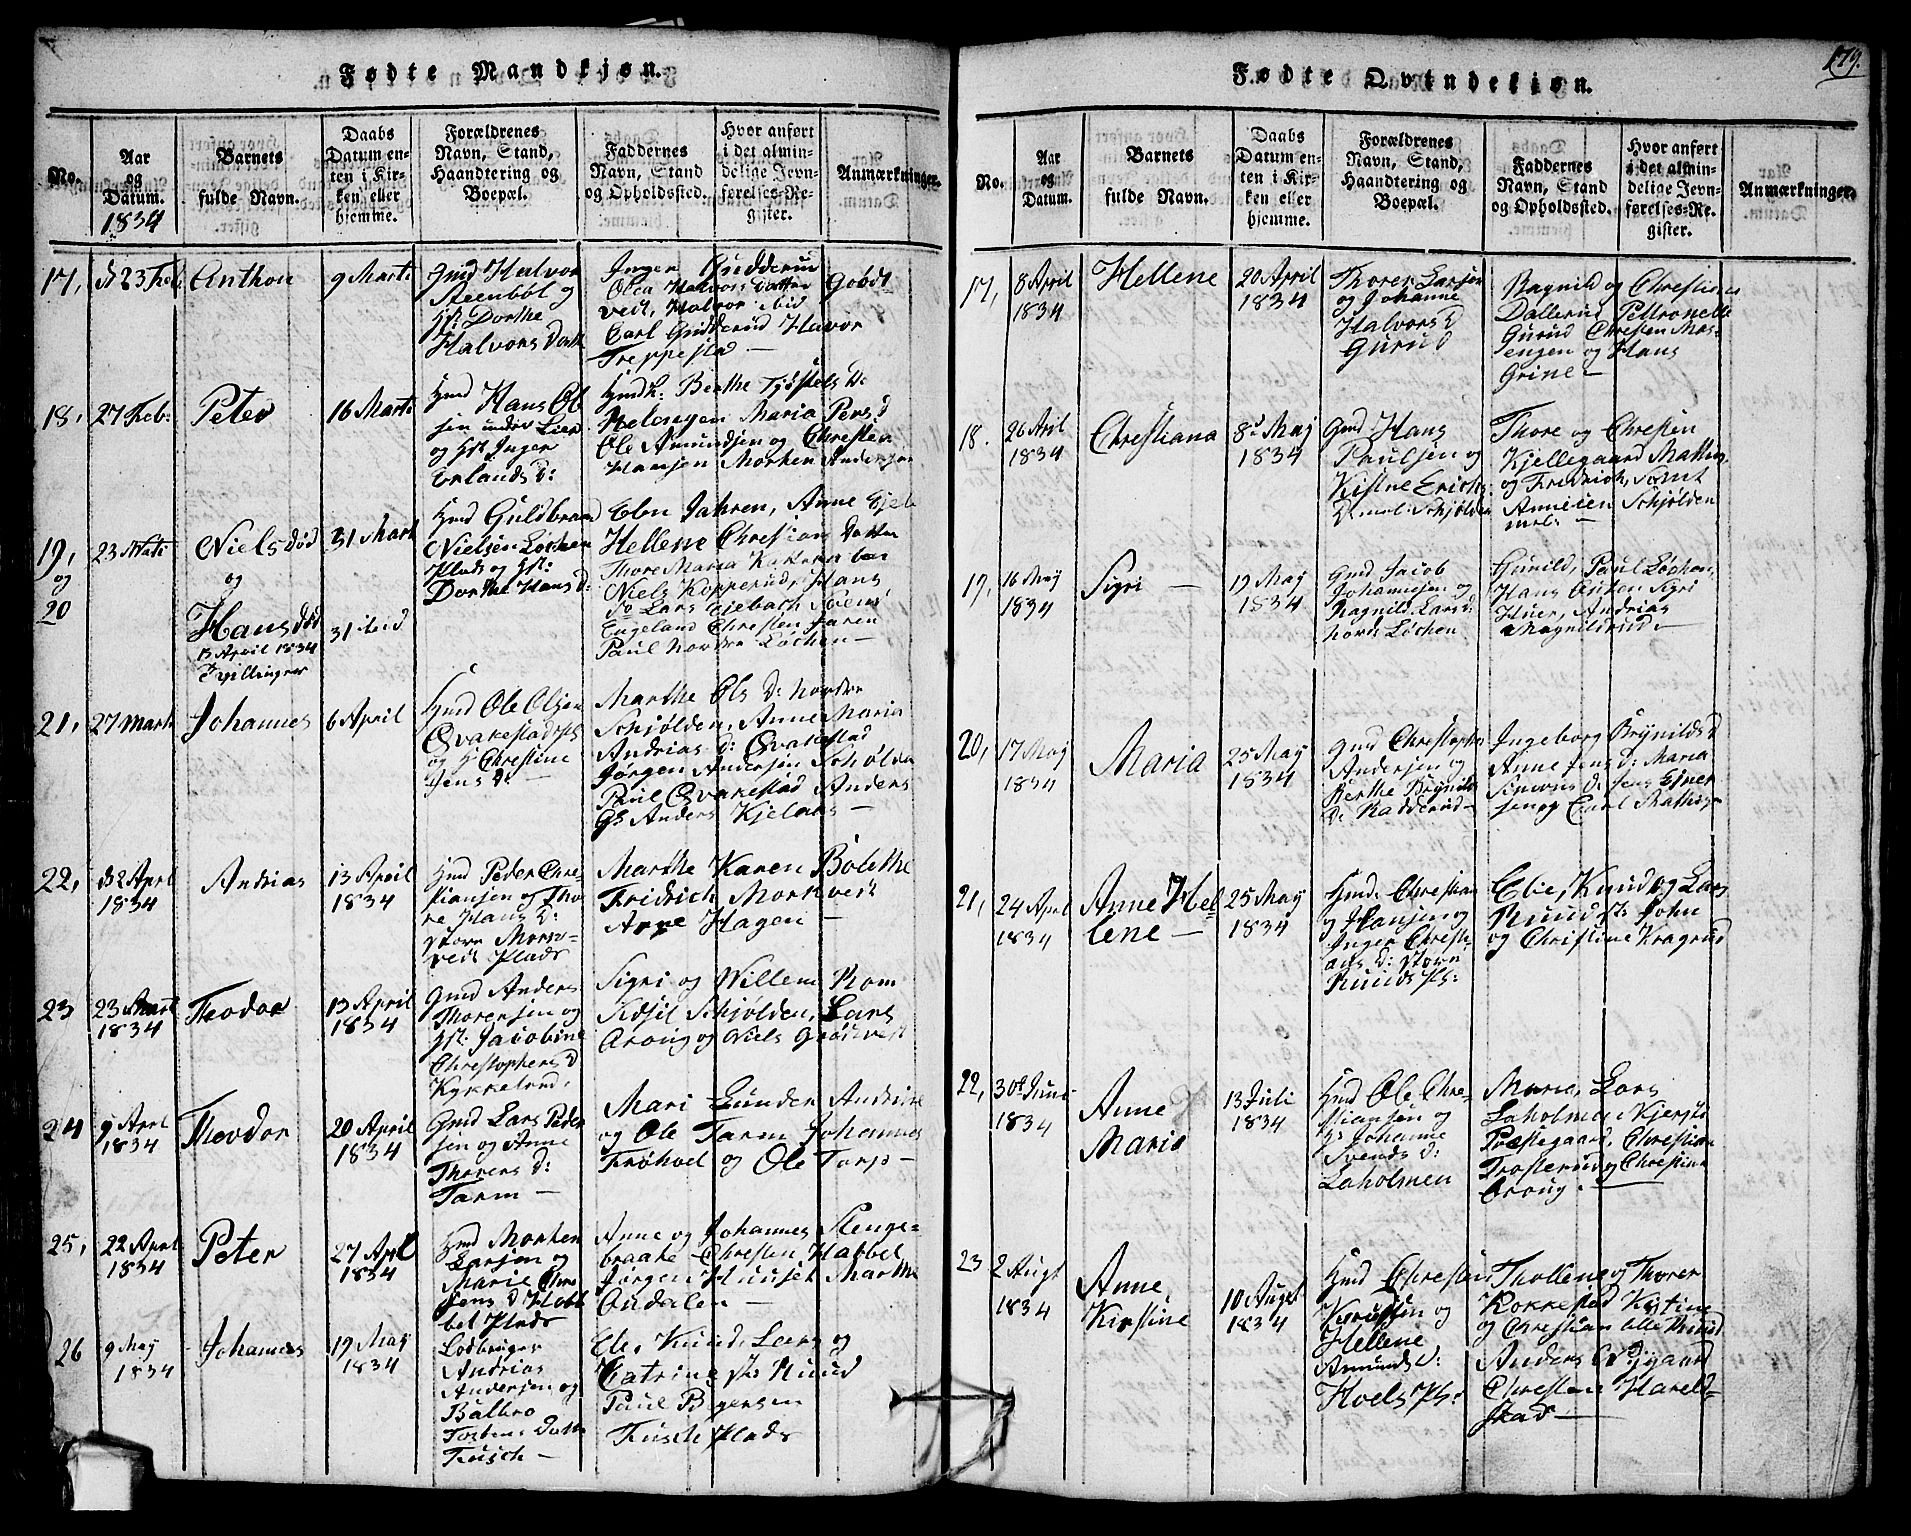 179.
Fødte Mandkjøn.
No.
Aar
og
Datum.
1834
Barnets
fulde Navn.
Daabs
Datum en-
ten i Kir-
ken eller
hjemme.
Forældrenes
Navn, Stand,
Haandtering og
Boepæl.
Faddernes
Navn, Stand
og Opholdssted.
Hvor anført
i det almin-
delige Jevn-
førelses-Re-
gister.
Anmærkninger.
17,
d 23 Feb
Anthon
9 Marti
Gmd Halvor
Steenbøl og
Dorthe
Halvors Datt
Inger Gudderud
Olea Halvors Datter
veit, Halvor ibid
Carl Gudderud Havor
Treppestad —
18,
27 Feb:
Peter
16 Marti
Gmd Hans Ol
sen undr Lier
og Hst Inger
Erlands d:
Gmdk: Berthe Tjøstels D:
Helengen Maria Pers d
Ole Amundsen og Christen
Hansen Morten Anders
19,
og
20
23 Marti
Niels død
og
Hans død
13 April 1834
Tvillinger
31 Mart
31 ibid
Gmd Guldbrand
Nielsen Løchen
Plads og Hst:
Dorthe Hans d:
Elen Jahren, Anne
Hellene Christians Datter
Thore Maria
Niels Kopperud, Hans
Lars Ejebach Svens
Engeland Christen Jaren
Paul Nordre Løchen —
21,
27 Marti
Johannes
6 April
Gmd Ole Olsen
Qvakestad Pls
og H Christine
Jens D: —
Marthe Ols D: Nordre
Schjølden, Anne Maria
Andrias D: Qvakestad
Jørgen Andersen Schølden
Paul Qvakestad Anders
Gs Anders Kjelaas —
22,
d 2 Aprl
1834
Andrias
13 April
1834
Gmd Peder Chre
stiansen og Tho
re Hans D:
Store Mork-
veit Plads
Marthe Karen Bolethe
Fridrich Morkveit
Arne Hagen —
23
23 Mart
1834
Theodor
13 April
1834
Gmd Anders
Thoresen og
Hst. Jacobine
Christophers d
Kykkelrud,
Sigri og Willem Rom
Kdsil Schjølden, Lars
Aroug og Niels Grødtvedt
24
9 Aprl
1834
Theodor
20 April
1834
Gmd Lars Peder
sen og Anne
Thorers D:
Tarm —
Mari Gunder Andrine
og Ole Tarm Johannes
Frøhoel og Ole Torp —
25,
22 Aprl
1834
Peter
27 Aprl
1834
Gmd Morten
Larsen og
Marie Chre
stens d Habl
bel Plads
Anne og Johannes Stenge-
braate Christen Habbel
Jørgen Huuset Marthe
Ondalen —
26
9 May
1834
Johannes
19 May
1834
Lodbruger
Andrias
Andersen og
Balbro
Torbens Datt
Tusch —
Else, Knud, Lars og
Catrine St: Ruud
Paul Børgersen
Tusch Plads
Fødte Qvindekjøn.
No.
Aar
og
Datum.
Barnets
fulde Navn.
Daabs
Datum en-
ten i Kir-
ken eller
hjemme.
Forældrenes
Navn, Stand,
Haandtering og
Boepæl.
Faddernes
Navn, Stand
og Opholdssted.
Hvor anført
i det almin-
delige Jevn-
førelses-Re-
gister.
Anmærkninger.
17,
8 April
1834
Hellene
20 April
1834
Thorer Larsen
og Johanne
Halvors D
Gurud
Ragnild og Christiene
Dallerud Pettronelle
Gurud Christen Mos-
engen og Hans
Grine —
18.
26 April
1834
Christiana
8d Maj
1834
Gmd Hans
Paulsen og
Kistne Erichs
D: mel: Schjølden
Thore og Christen
Kjellegaard Mathis
og Fredrich, Somt
Anne Schjølden
mel: —
19,
16 May
1834
Sigri —
19 May
1834
Gmd Jacob
Johannesen og
Ragnild Lars d:
Nord: Løchen
Gunild, Paul Løchen,
Hans Asten Sigri
Huer, Andrias
Magnildrud —
20,
17 May
1834
Maria
25 May
1834
Gmd Christophr
Andersen og
Berthe Brynilds
D: Radderud —
Ingeborg Brynilds d
Anne Jens D: Maria
Simons D: Jens Ejner
sen og Carl Mathis
21,
24 April
1834
Anne Hel
lene —
25 May
1834
Gmd: Christian
Hansen og
Inger Christi
ans D: Store
Ruuds Pls:
Elie, Knud og Lars
Ruud St: John
og Christine Kragrud
22,
30d Juni
1834
Anne
Marie
13 Juli
1834
Gmd Ole Chre-
stiansen og
Johanne
Svends D:
Laholmen
Maria, Lars
Laholmen Kjersti
Præstegaard, Christian
Trosterud og Christine
Aroug.
23
2 Augt
1834
Anne
Kirstine
10 Augst
1834
Gmd Christen
Knudsen og
Hellene
Amunds D:
Hoels Pls:
Thollene og Thorer
Rokkestad Kistine
og Christian lille Ruud
Anders Nygaard
Christen Harald-
stad —